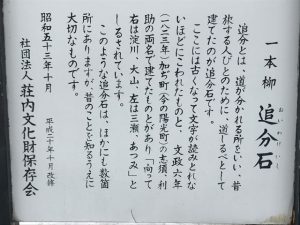 一本柳 追分石
おいわけいし
追分とは、道が分かれる所をいい、昔
旅する人びとのために、道しるべとして
建てたのが追分石です。
ここには古くなって文字が読みとれな
いほどにこわれたものと、文政六年
(一八二三年)加ぢ町(今の陽光町)の志須、利
助の両名で建てたものとがあり「向って
右は淀川、大山、左は三瀬、あつみ」と
しるされています。
このような追分石は、ほかにも数箇
所にありますが、昔のことを知るうえに
大切なものです。
昭和五十三年十月
平成二十年十月 改修
社団法人 荘内文化財保存会